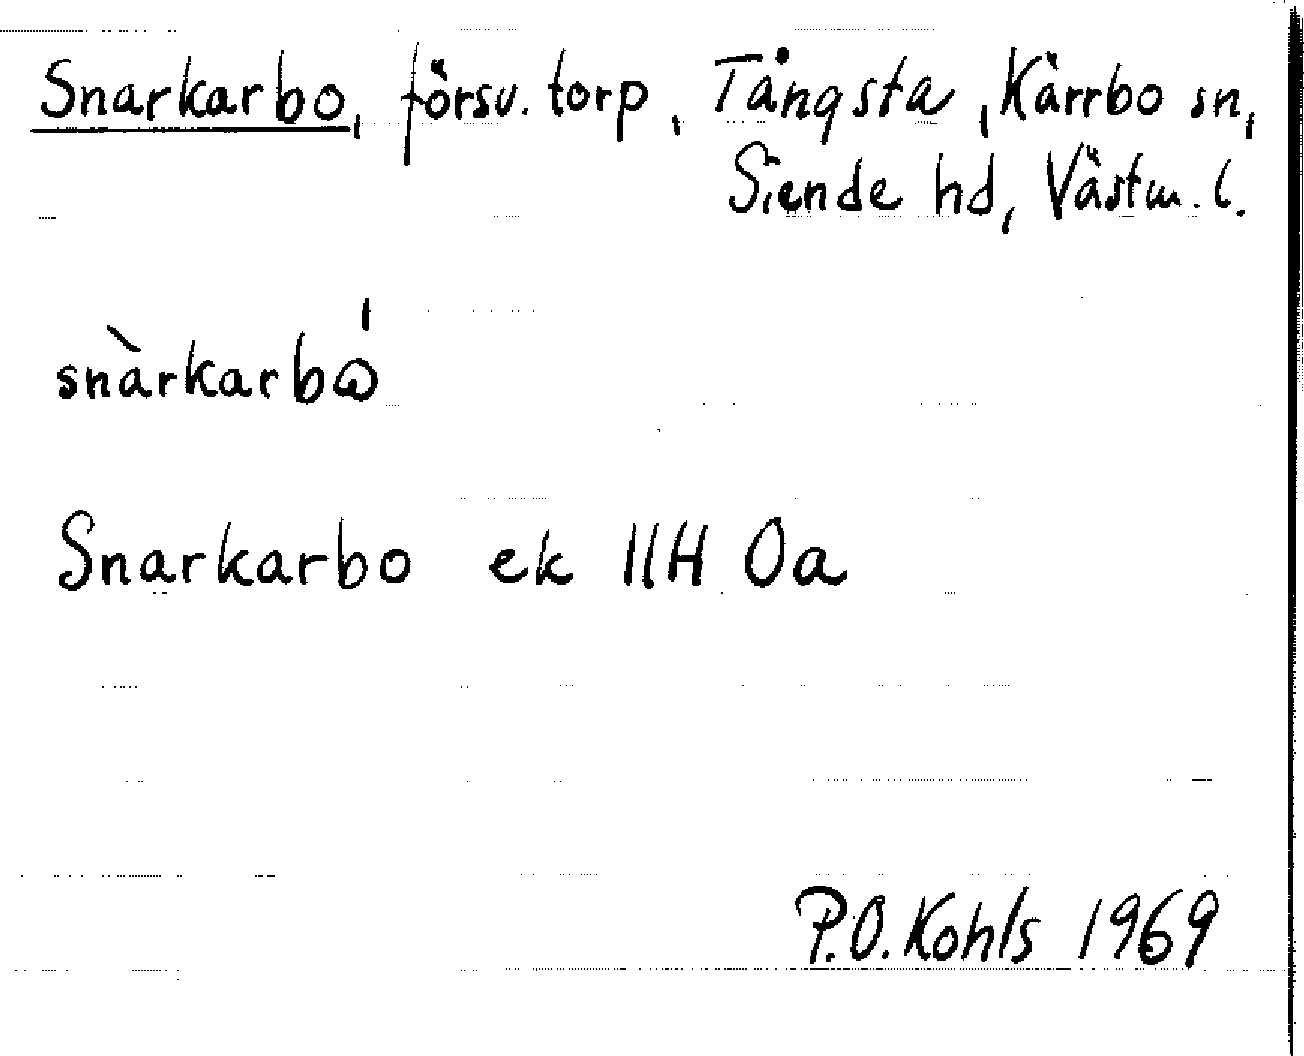 Snarkarbo, försv. torp, Tångsta, Kärrbo sn,
Siende hd, Västm. l.
snàrkarbώ
Snarkarbo ek 11H 0a
P.O. Kohls 1969